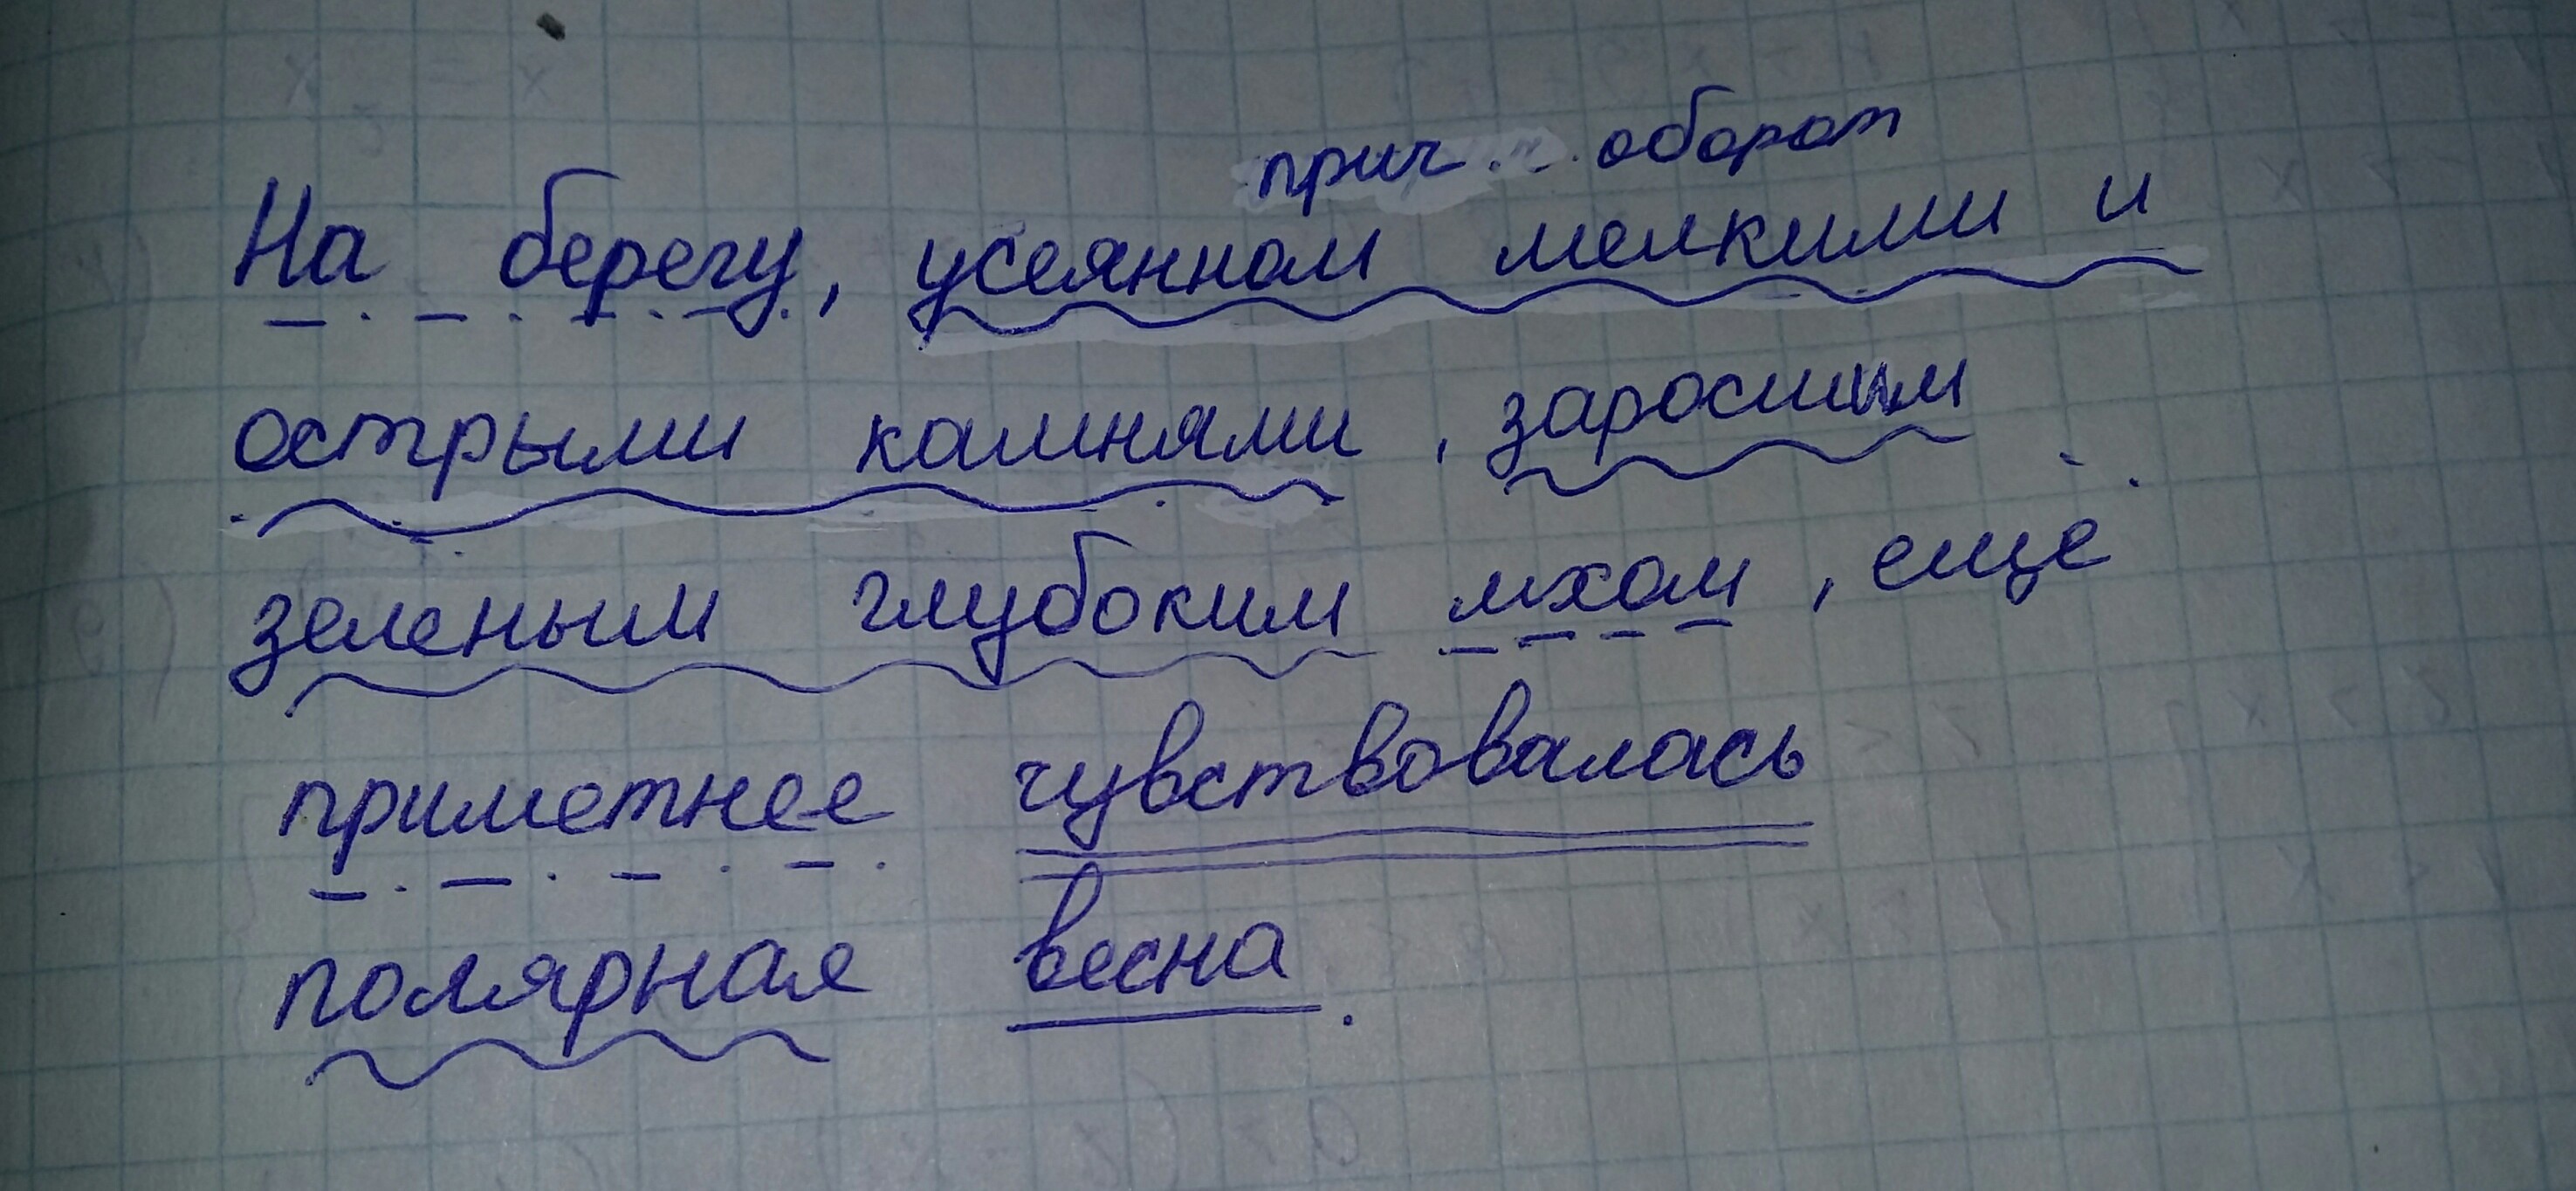 прич. оборот
На берегу, усеянном мелкими и
острыми камнями, заросшим
зелёным глубоким мхом, ещё
приметнее чувствовалась
полярная весна.